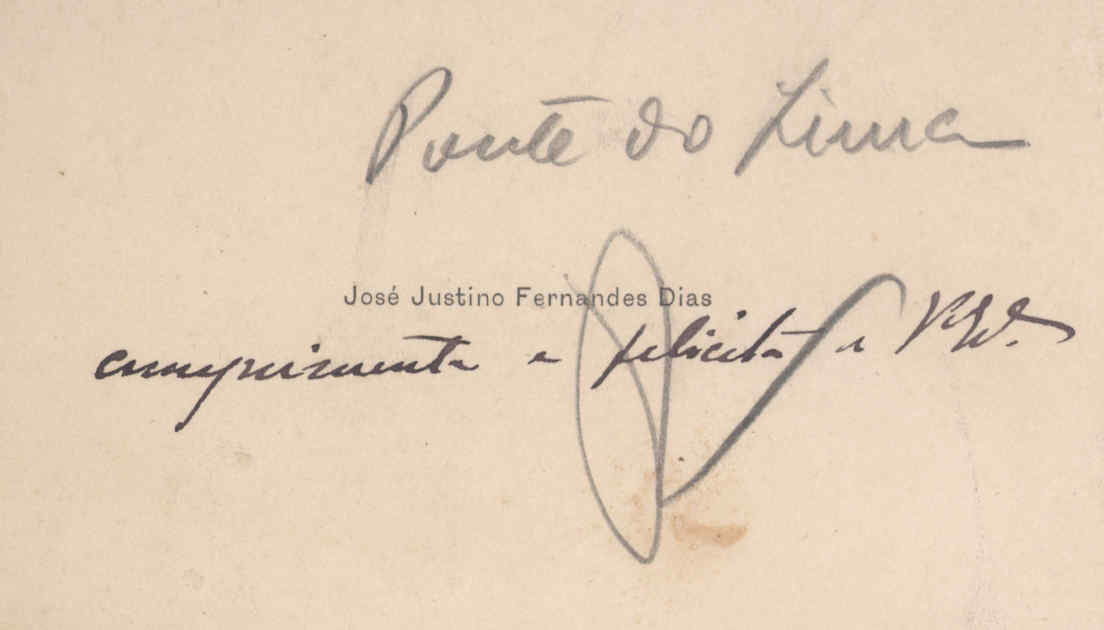 Ponte do Lima
José Justino Fernandes Dias
cumprimenta e felicita a V. Ex.